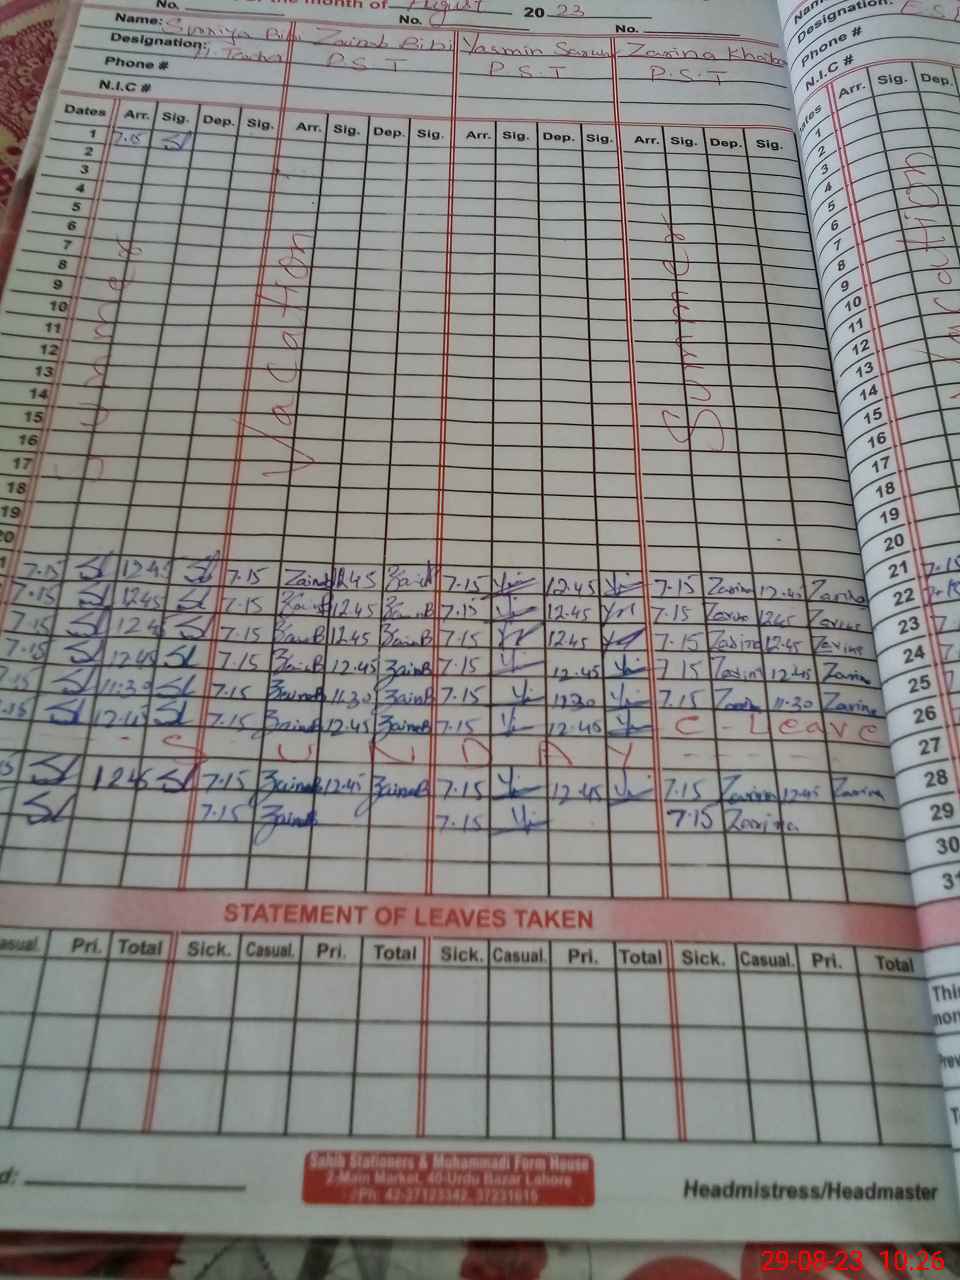 No. No. No.
the month of August 2023
Name: Bibi Zainab Bibi Yasmin Zarina
Designation: P.S.T P.S.T P.S.T
Phone #
N.I.C #
Designation:
Phone #
N.I.C #
Dates Arr. Sig. Dep. Sig. Arr. Sig. Dep. Sig. Arr. Sig. Dep. Sig. Arr. Sig. Dep. Sig.
Arr. Sig. Dep.
1 7.15 Sl
2
3
4
5
6
7
8
9
10
11
12
13
14
15
16
17
18
19
20
Summer Vacation Summer
1
2
3
4
5
6
7
8
9
10
11
12
13
14
15
16
17
18
19
20
7.15 Sl 12.45 Sl 7.15 Zainab 12.45 Zainab 7.15 12.45 7.15 Zarina 12.45 Zarina 21 7.15
7.15 Sl 12.45 Sl 7.15 ZainB 12.45 ZainB 7.15 12.45 7.15 Zarina 12.45 Zarina 22
7.15 Sl 12.45 Sl 7.15 ZainB 12.45 ZainB 7.15 12.45 7.15 Zarina 12.45 Zarina 23
7.15 Sl 12.45 Sl 7.15 ZainB 12.45 ZainB 7.15 12.45 7.15 Zarina 12.45 Zarina 24
7.15 Sl 11.30 Sl 7.15 ZainaB 11.30 ZainB 7.15 11.30 7.15 Zarina 11.30 Zarina 25
7.15 Sl 12.45 Sl 7.15 ZainB 12.45 ZainB 7.15 12.45 C - Leave 26
SUNDAY 27
Sl 12.45 Sl 7.15 ZainaB 12.45 ZainaB 7.15 12.45 7.15 Zarina 12.45 Zarina 28
Sl 7.15 Zainab 7.15 7.15 Zarina 29
30
31
STATEMENT OF LEAVES TAKEN
Casual. Pri. Total Sick. Casual. Pri. Total Sick. Casual. Pri. Total Sick. Casual. Pri. Total
Sahib Stationers & Muhammadi Form House
2-Main Market, 40-Urdu Bazar Lahore
Ph: 42-37123342, 37231615
Headmistress/Headmaster
29-08-23 10:26